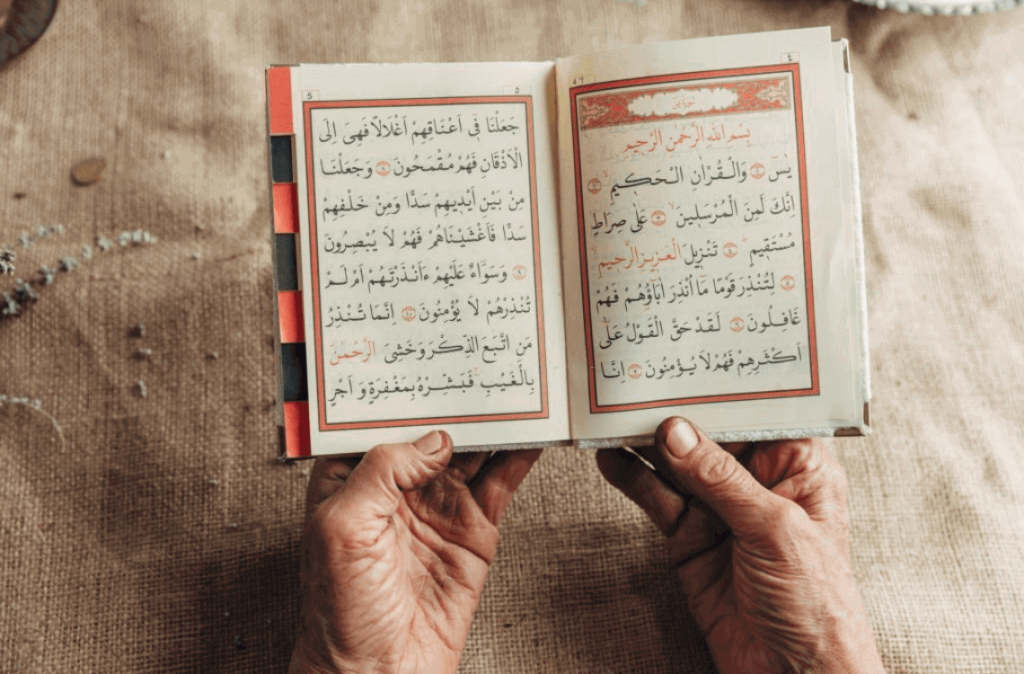 بِسْمِ اللّٰهِ الرَّحْمٰنِ الرَّحٖيمِ
يٰسٓ ۝١ وَالْقُرْاٰنِ الْحَكٖيمِ ۝٢
اِنَّكَ لَمِنَ الْمُرْسَلٖينَ ۝٣ عَلٰى صِرَاطٍ
مُسْتَقٖيمٍ ۝٤ تَنْزٖيلَ الْعَزٖيزِ الرَّحٖيمِ
۝٥ لِتُنْذِرَ قَوْمًا مَٓا اُنْذِرَ اٰبَٓاؤُ۬هُمْ فَهُمْ
غَافِلُونَ ۝٦ لَقَدْ حَقَّ الْقَوْلُ عَلٰٓى
اَكْثَرِهِمْ فَهُمْ لَا يُؤْمِنُونَ ۝٧ اِنَّا
جَعَلْنَا فٖٓى اَعْنَاقِهِمْ اَغْلَالًا فَهِىَ اِلَى
الْاَذْقَانِ فَهُمْ مُقْمَحُونَ ۝٨ وَجَعَلْنَا
مِنْ بَيْنِ اَيْدٖيهِمْ سَدًّا وَمِنْ خَلْفِهِمْ
سَدًّا فَاَغْشَيْنَاهُمْ فَهُمْ لَا يُبْصِرُونَ
۝٩ وَسَوَٓاءٌ عَلَيْهِمْ ءَاَنْذَرْتَهُمْ اَمْ لَمْ
تُنْذِرْهُمْ لَا يُؤْمِنُونَ ۝١٠ اِنَّمَا تُنْذِرُ
مَنِ اتَّبَعَ الذِّكْرَ وَخَشِىَ الرَّحْمٰنَ
بِالْغَيْبِ فَبَشِّرْهُ بِمَغْفِرَةٍ وَاَجْرٍ